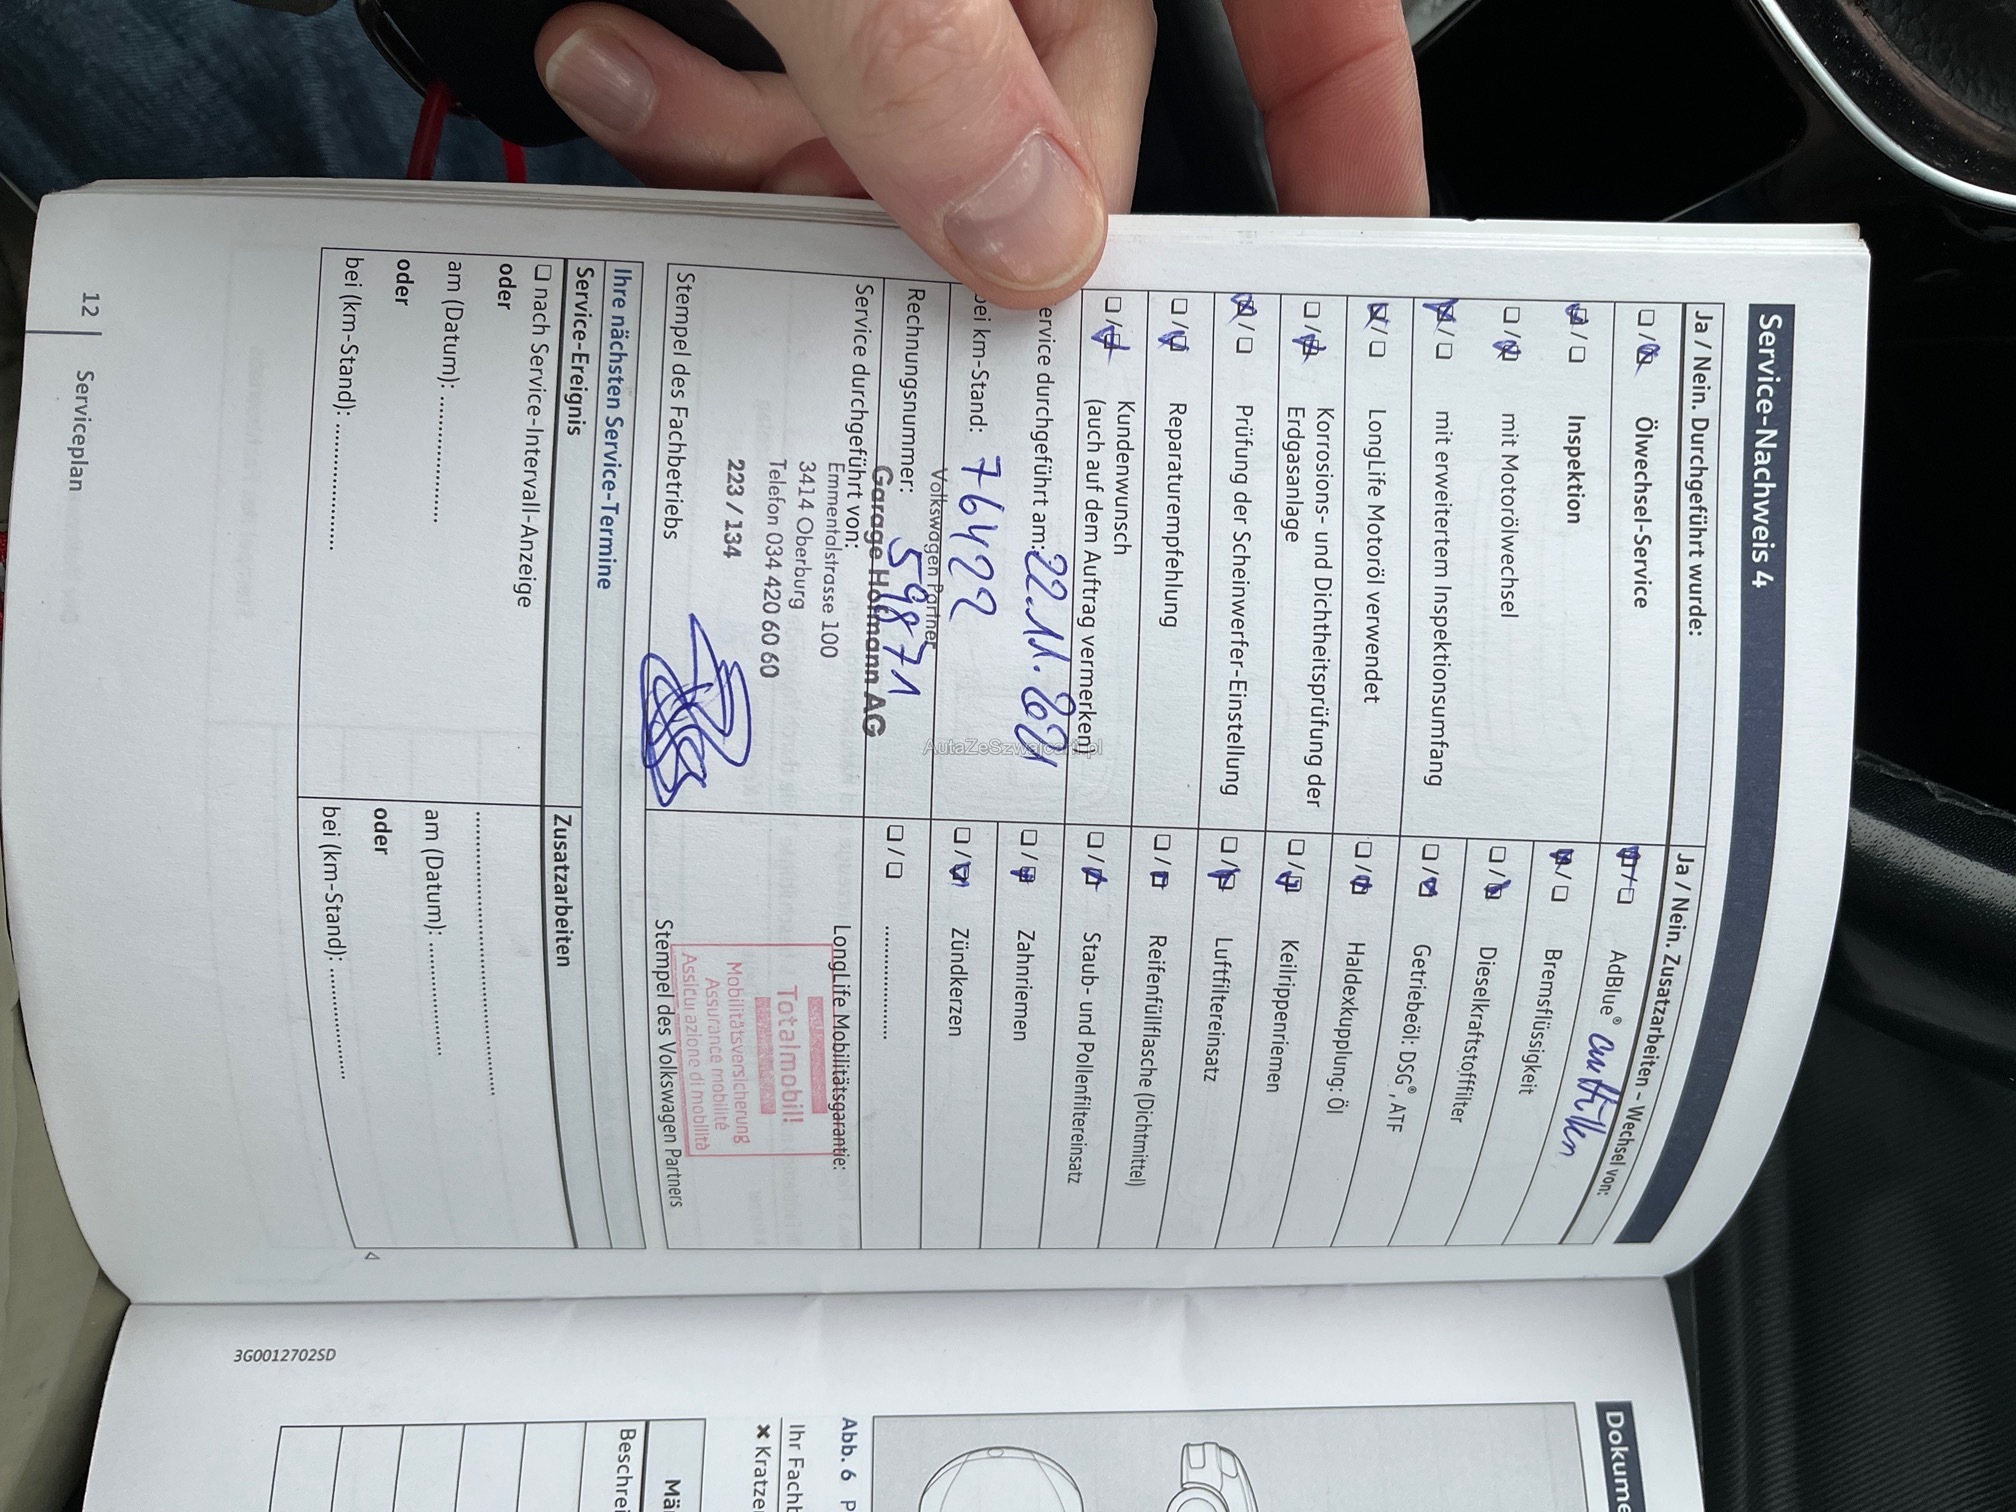 Service-Nachweis 4
Ja / Nein. Durchgeführt wurde:
Ölwechsel-Service
Inspektion
mit Motorölwechsel
mit erweitertem Inspektionsumfang
LongLife Motoröl verwendet
Korrosions- und Dichtheitsprüfung der
Erdgasanlage
Prüfung der Scheinwerfer-Einstellung
Reparaturempfehlung
Kundenwunsch
(auch auf dem Auftrag vermerken)
ervice durchgeführt am: 22.11.2021
bei km-Stand: 76422
Rechnungsnummer: 59871
Service durchgeführt von:
Volkswagen Partner
Garage Hofmann AG
Emmentalstrasse 100
3414 Oberburg
Telefon 034 420 60 60
223 / 134
Stempel des Fachbetriebs
Ja / Nein. Zusatzarbeiten – Wechsel von:
AdBlue® auffüllen
Bremsflüssigkeit
Dieselkraftstofffilter
Getriebeöl: DSG®, ATF
Haldexkupplung: Öl
Keilrippenriemen
Luftfiltereinsatz
Reifenfüllflasche (Dichtmittel)
Staub- und Pollenfiltereinsatz
Zahnriemen
Zündkerzen
....................
LongLife Mobilitätsgarantie:
Totalmobil!
Mobilitätsversicherung
Assurance mobilité
Assicurazione di mobilità
Stempel des Volkswagen Partners
Ihre nächsten Service-Termine
Service-Ereignis
nach Service-Intervall-Anzeige
oder
am (Datum): ......................
oder
bei (km-Stand): ......................
Zusatzarbeiten
..................................................
am (Datum): ....................
oder
bei (km-Stand): ....................
12 Serviceplan
AutaZeSzwajcarii.pl
3G0012702SD
Dokume
Abb. 6 P
Ihr Fachb
✖ Kratze
Mä
Beschrei